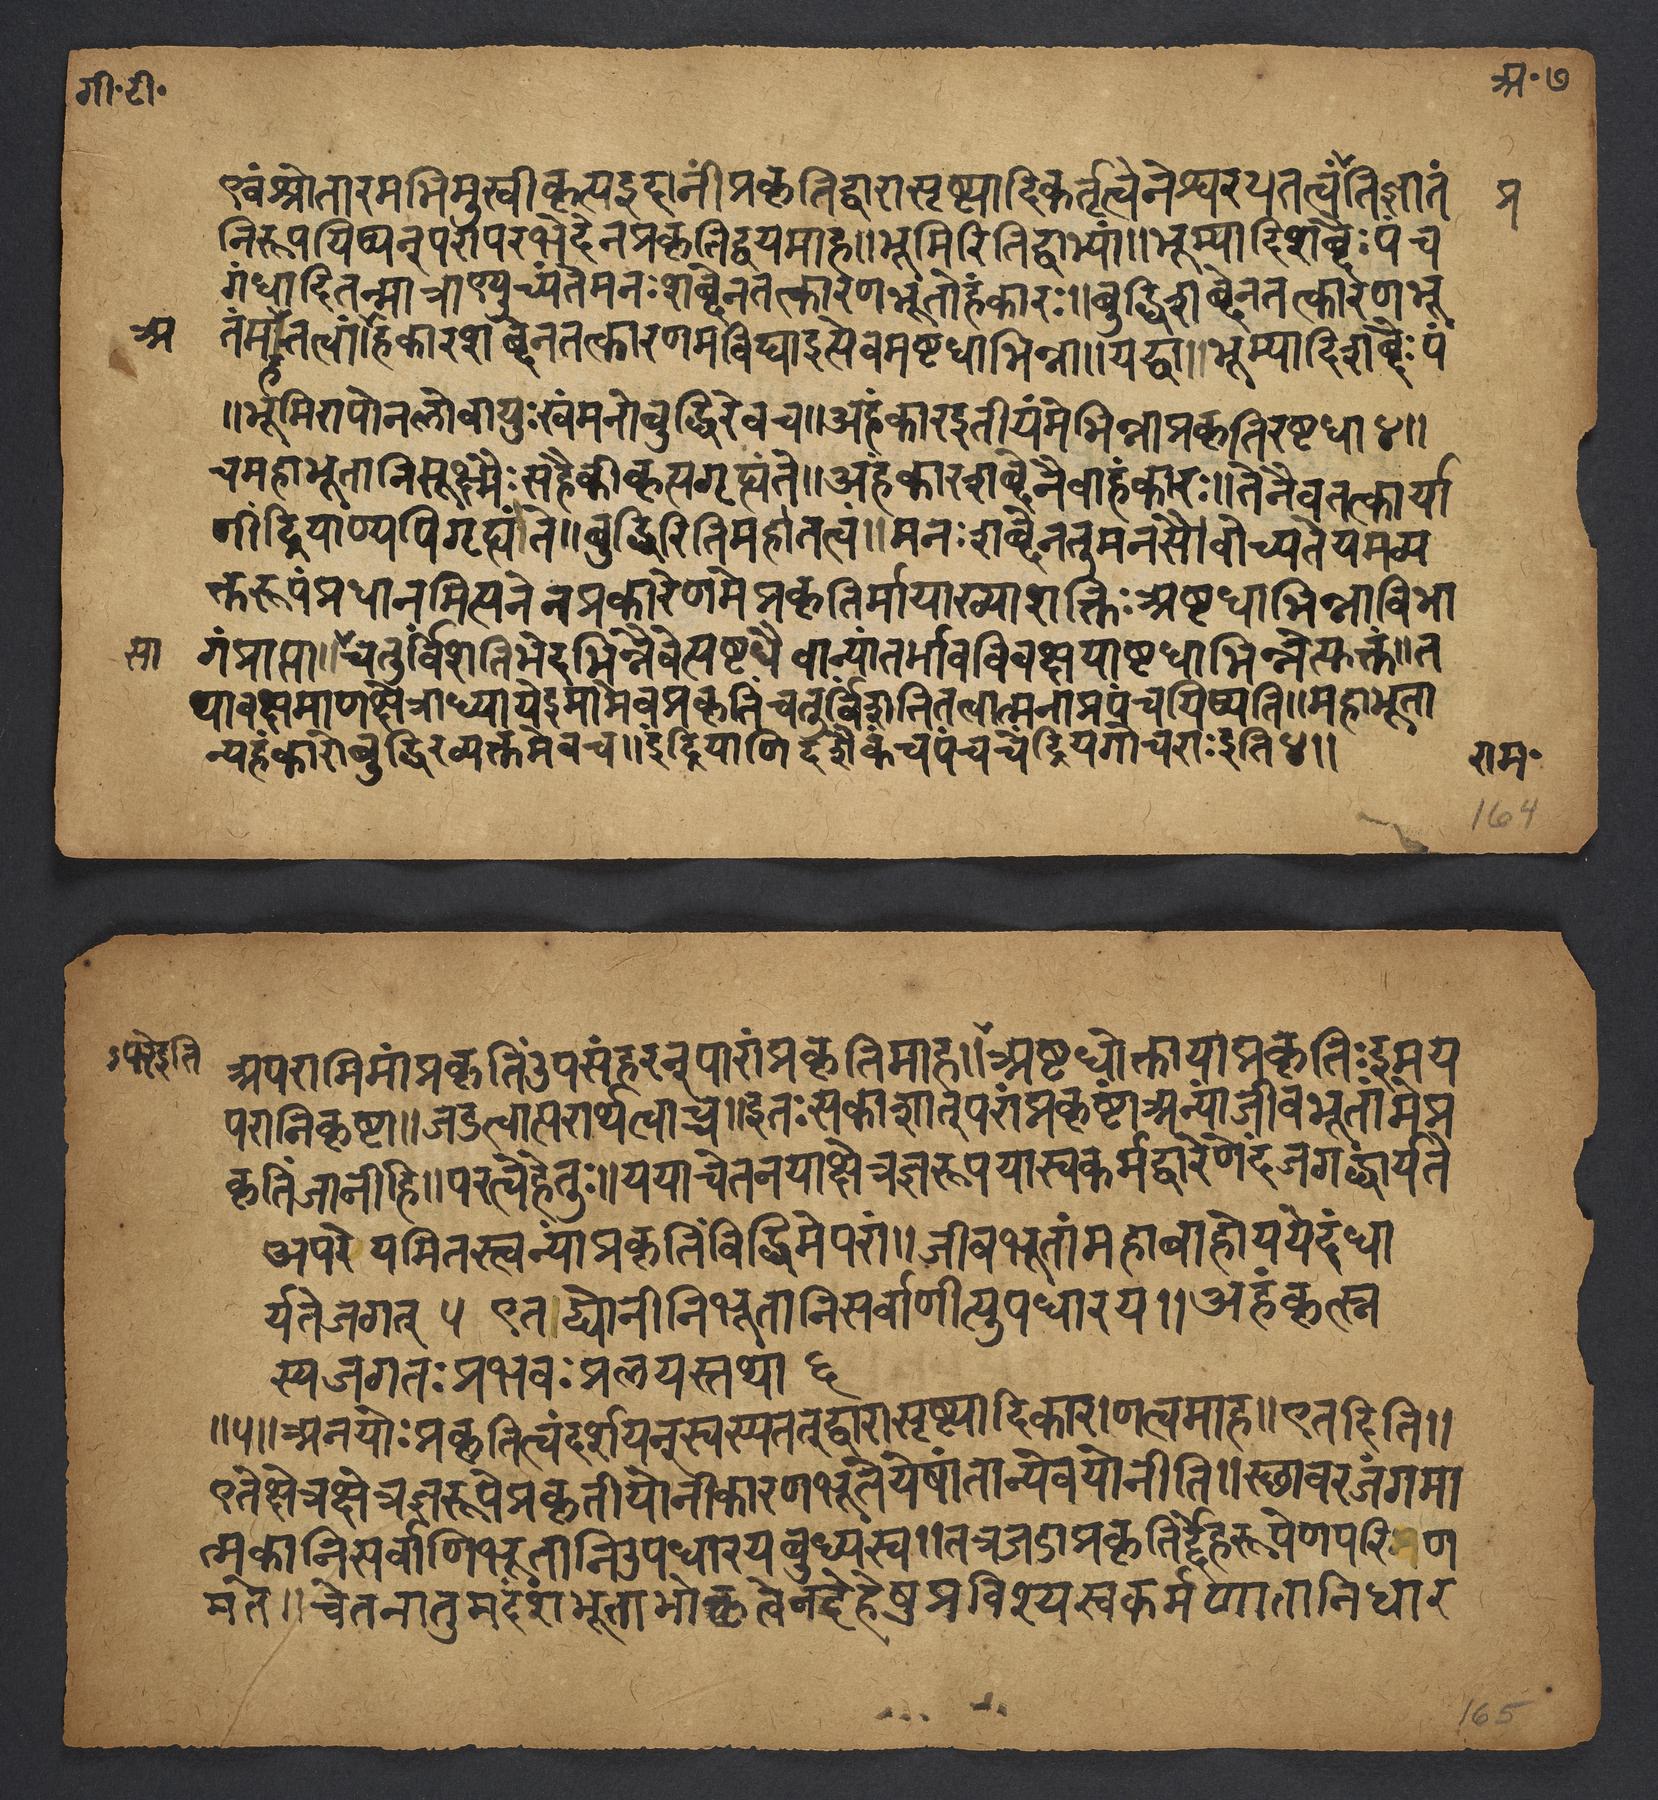 गी·टी·
अ·७
एवंश्रोतारमभिमुखीकृत्यइदानींप्रकृतिद्वारासृष्ट्यादिकर्तृत्वेनेश्वरयतत्त्वंतिज्ञातं
प्र
निरूपयिष्यन्परापरभेदेनप्रकृतिद्वयमाह॥भूमिरितिद्वाभ्यां॥भूम्यादिशब्दैःपंच
गंधादितन्मात्राण्युच्यंतेमनःशब्देनतत्कारणभूतोहंकारः॥बुद्धिशब्देनतत्कारणभू
अ
तंमातत्वांहंकारशब्देनतत्कारणमविद्याइत्येवमष्टधाभिन्ना॥यद्वा॥भूम्यादिशब्दैःपं
॥भूमिरापोनलोवायुःखंमनोबुद्धिरेवच॥अहंकारइतीयंमेभिन्नाप्रकृतिरष्टधा४॥
चमहाभूतानिसूक्ष्मैःसहैकीकृत्यगृह्यंते॥अहंकारशब्देनैवाहंकारः॥तेनैवतत्कार्या
णींद्रियाण्यपिगृह्यंते॥बुद्धिरितिमहातत्वं॥मनःशब्देनतुमनसैवोच्यतेयमव्य
क्तरूपंप्रधानमित्यनेनप्रकारेणमेप्रकृतिर्मायाख्याशक्तिःअष्टधाभिन्नाविभा
सा
गंप्राप्ता॥चतुर्विंशतिभेदभिन्नैवेत्यष्टधैवान्यांतर्भावविवक्षयाष्टधाभिन्नेत्कक्तं॥त
थावक्षमाणक्षेत्राध्यायेइमामेवप्रकृतिंचतुर्विंशतितत्वात्मनाप्रपंचयिष्यति॥महाभूता
न्यहंकारोबुद्धिरव्यक्तमेवच॥इंद्रियाणिदशैकंचपंचचेंद्रियगोचराःइति४॥
राम·
164
अपरेइति
अपरामिमांप्रकृतिंउपसंहरन्पारांप्रकृतिमाह॥अष्टधोक्तायाप्रकृतिःइमय
परानिकृष्टा॥जडत्वात्परार्थत्वाच्च॥इतःसकाशात्परांप्रकृष्टांअन्यांजीवभूतांमंप्र
कृतिंजानीहि॥परत्वेहेतुः॥ययाचेतनयाक्षेत्रज्ञरूपयास्वकर्मद्वारेणेदंजगद्धार्यते
अपरेयमितस्त्वन्यांप्रकृतिंविद्धिमेपरां॥जीवभूतांमहाबाहोययेदंधा
र्यतेजगत् ५ एतद्योनीनिभूतानिसर्वाणीत्युपधारय॥अहंकृत्स्न
स्यजगतःप्रभवःप्रलयस्तथा ६
॥५॥अनयोःप्रकृतित्वंदर्शयन्स्वस्यतत्द्वारासृष्ट्यादिकारणत्वमाह॥एतदिति॥
एतेक्षेत्रक्षेत्रज्ञरूपेप्रकृतीयोनीकारणभूतेयेषांतान्येवयोनीति॥स्छावरजंगमा
त्मकानिसर्वाणिभूतानिउपधारयबुध्यस्व॥तत्रजडाप्रकृतिर्द्देहरूपेणपरिण
मते॥चेतनातुमदंशभूताभोक्तृत्वेनदेहेषुप्रविश्यस्वकर्मणातानिधार
165